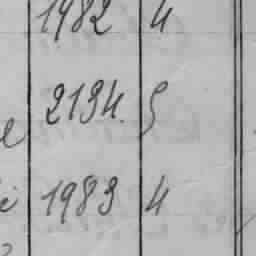 1982 4
2134. 5
1983 4